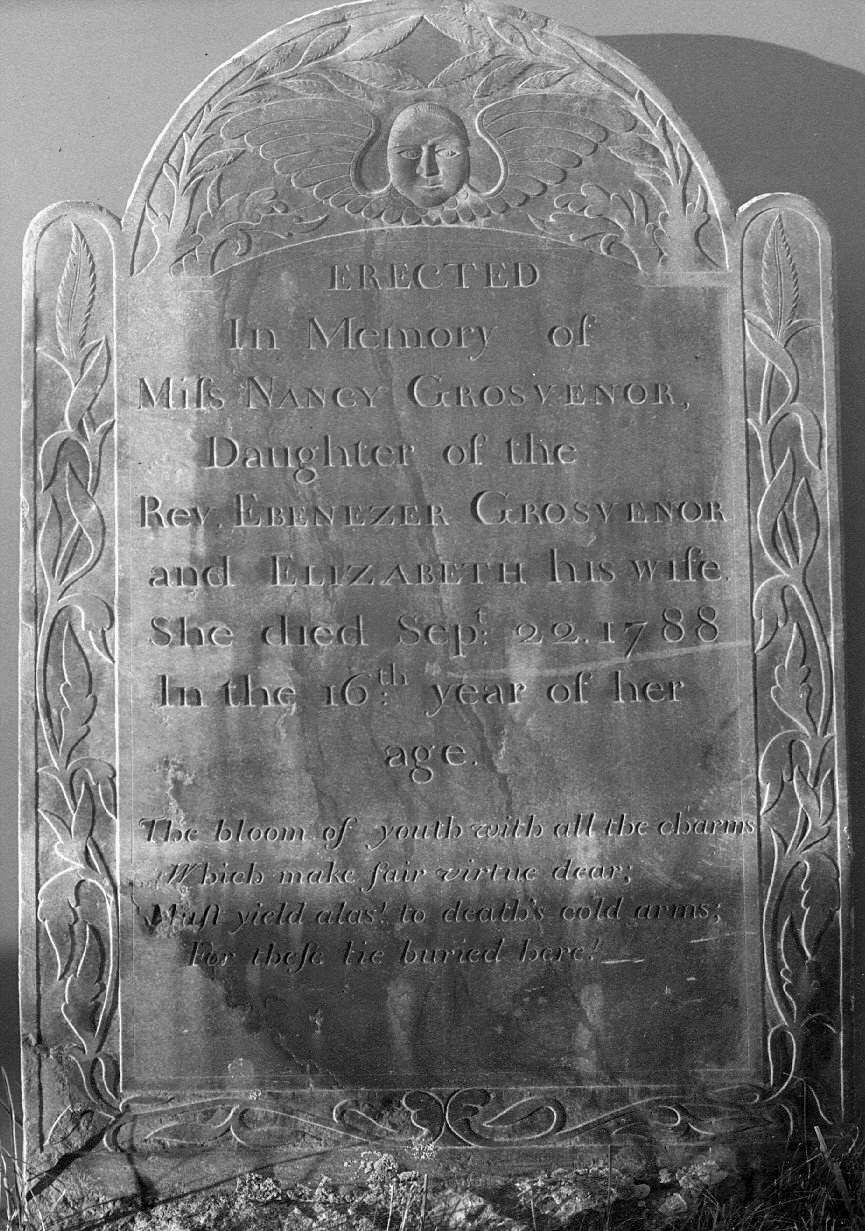 ERECTED
In Memory of
Miſs NANCY GROSVENOR,
Daughter of the
Rev. EBENEZER GROSVENOR
and ELIZABETH his wife.
She died Sept. 22. 1788
In the 16th. year of her
age.
The bloom of youth with all the charms
Which make fair virtue dear;
Muſt yield alas! to death's cold arms;
For theſe lie buried here!